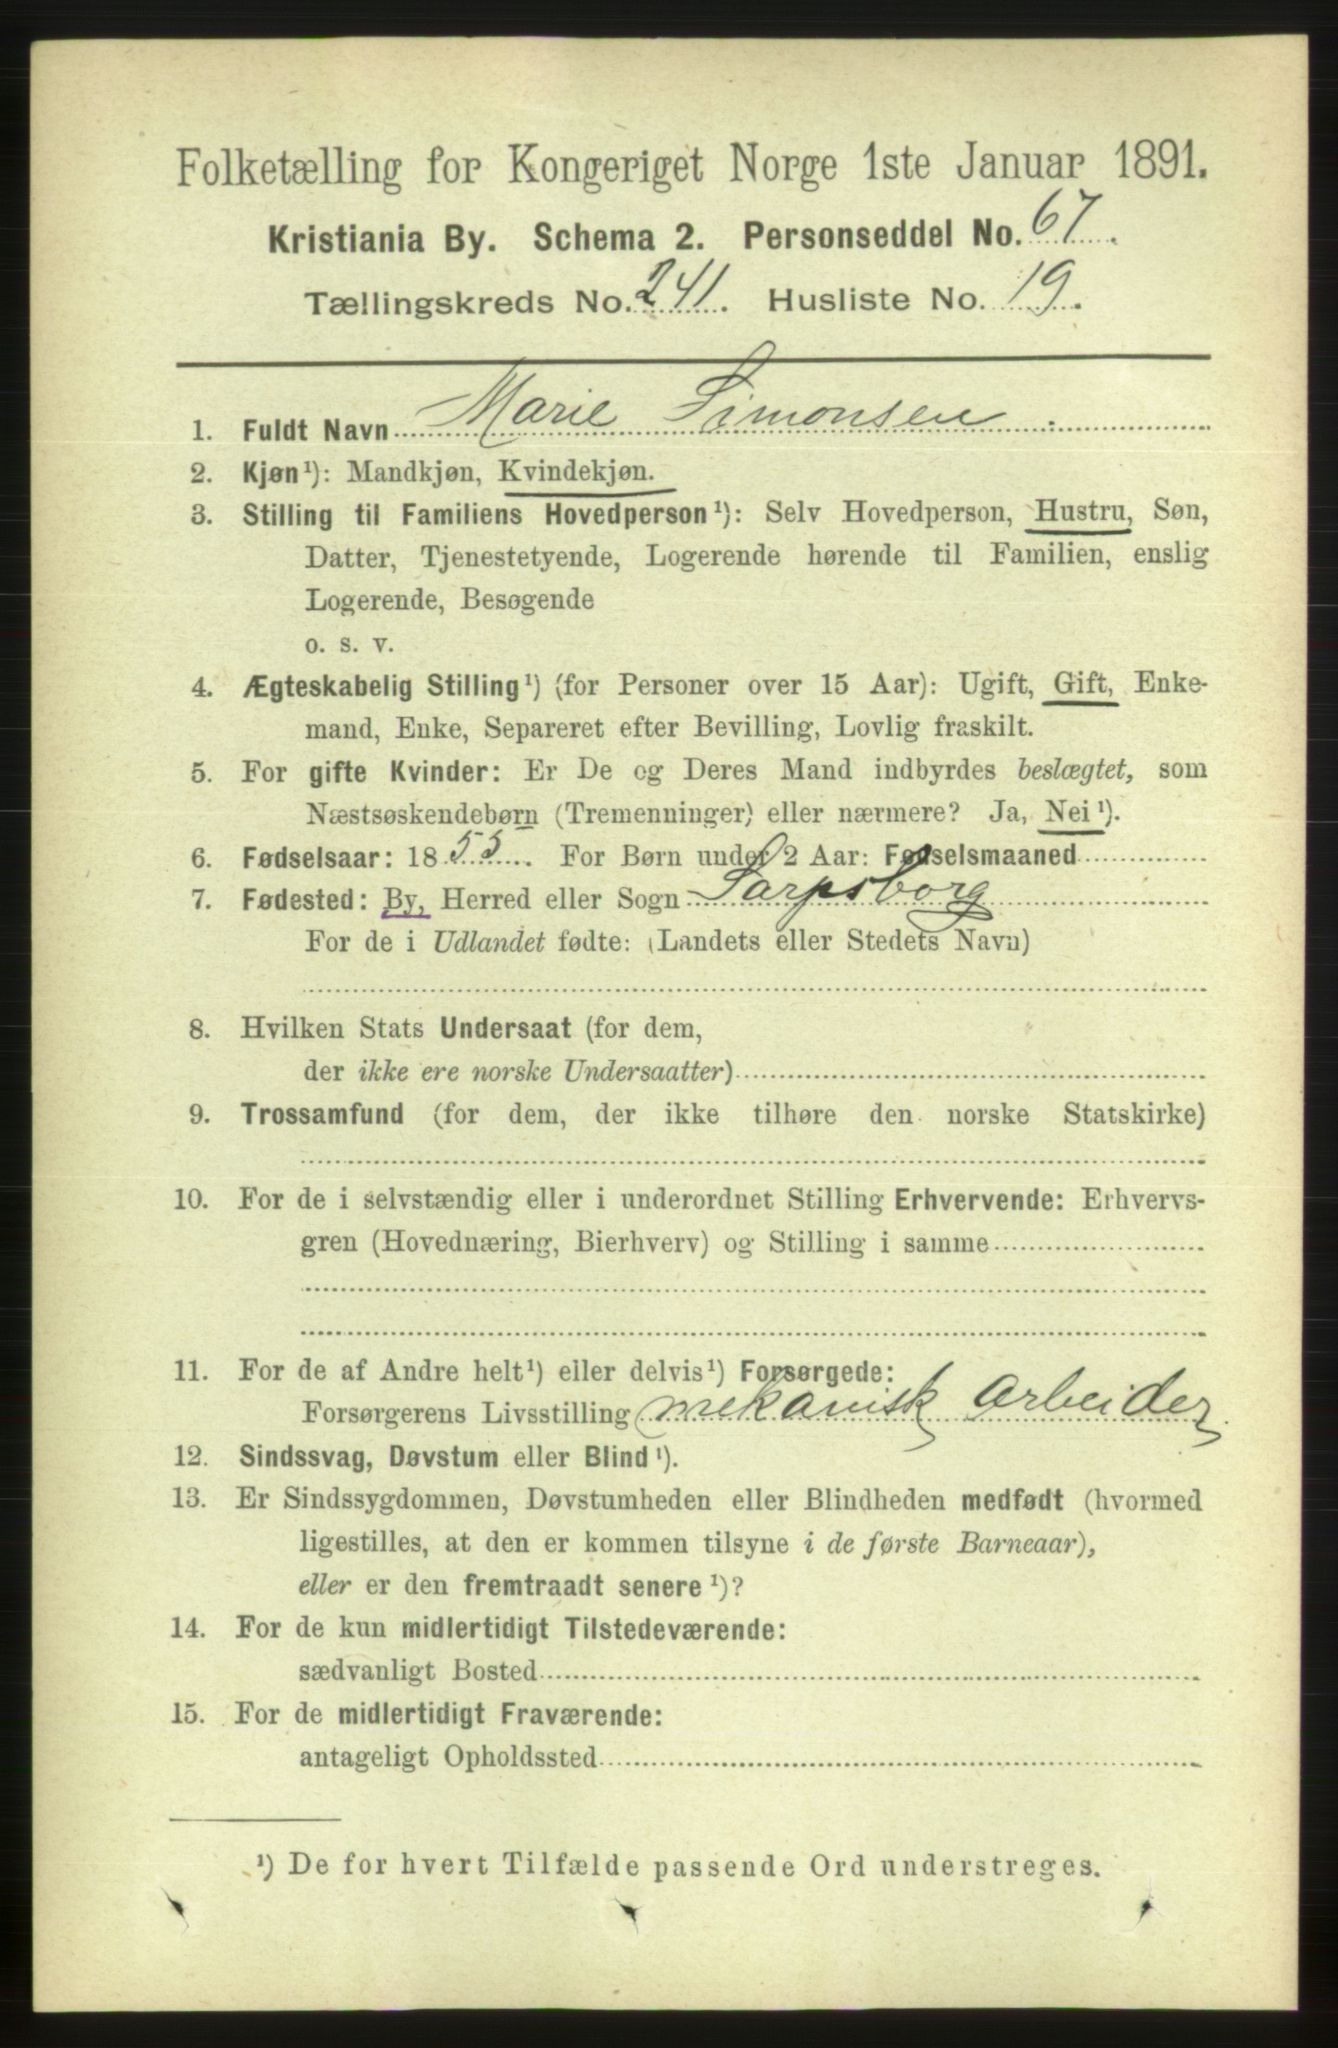 Folketælling for Kongeriget Norge 1ste Januar 1891.
Kristiania By. Schema 2. Personseddel No. 67.
Tællingskreds No. 241. Husliste No. 19.
1. Fuldt Navn Marie Simonsen
2. Kjøn¹): Mandkjøn, Kvindekjøn.
3. Stilling til Familiens Hovedperson¹): Selv Hovedperson, Hustru, Søn,
Datter, Tjenestetyende, Logerende hørende til Familien, enslig
Logerende, Besøgende
o. s. v.
4. Ægteskabelig Stilling¹) (for Personer over 15 Aar): Ugift, Gift, Enke-
mand, Enke, Separeret efter Bevilling, Lovlig fraskilt.
5. For gifte Kvinder: Er De og Deres Mand indbyrdes beslægtet, som
Næstsøskendebørn (Tremenninger) eller nærmere? Ja, Nei¹).
6. Fødselsaar: 1853. For Børn under 2 Aar: Fødselsmaaned
7. Fødested: By, Herred eller Sogn Sarpsborg
For de i Udlandet fødte: (Landets eller Stedets Navn)
8. Hvilken Stats Undersaat (for dem,
der ikke ere norske Undersaatter)
9. Trossamfund (for dem, der ikke tilhøre den norske Statskirke)
10. For de i selvstændig eller i underordnet Stilling Erhvervende: Erhvervs-
gren (Hovednæring, Bierhverv) og Stilling i samme
11. For de af Andre helt¹) eller delvis¹) Forsørgede:
Forsørgerens Livsstilling mekanisk Arbeider
12. Sindssvag, Døvstum eller Blind¹).
13. Er Sindssygdommen, Døvstumheden eller Blindheden medfødt (hvormed
ligestilles, at den er kommen tilsyne i de første Barneaar),
eller er den fremtraadt senere¹)?
14. For de kun midlertidigt Tilstedeværende:
sædvanligt Bosted
15. For de midlertidigt Fraværende:
antageligt Opholdssted
¹) De for hvert Tilfælde passende Ord understreges.